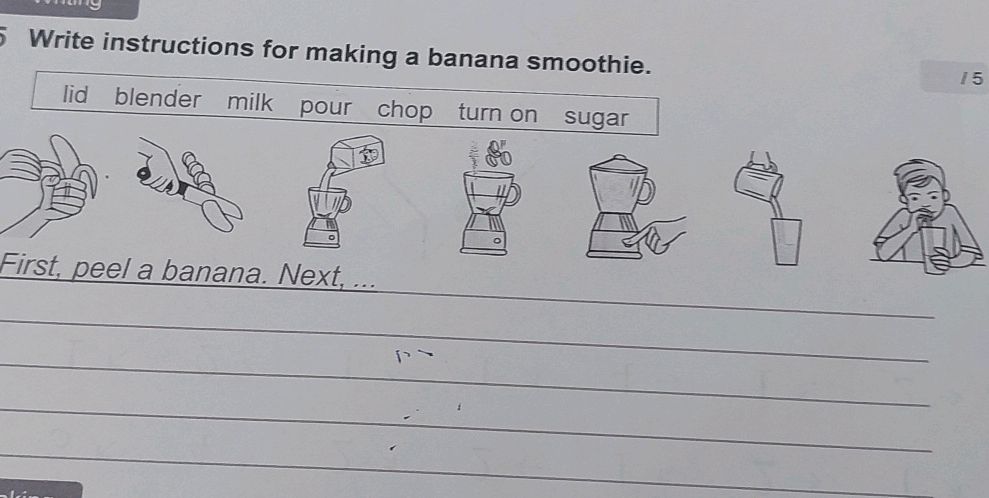 5 Write instructions for making a banana smoothie.
/ 5
lid blender milk pour chop turn on sugar
First, peel a banana. Next, ...